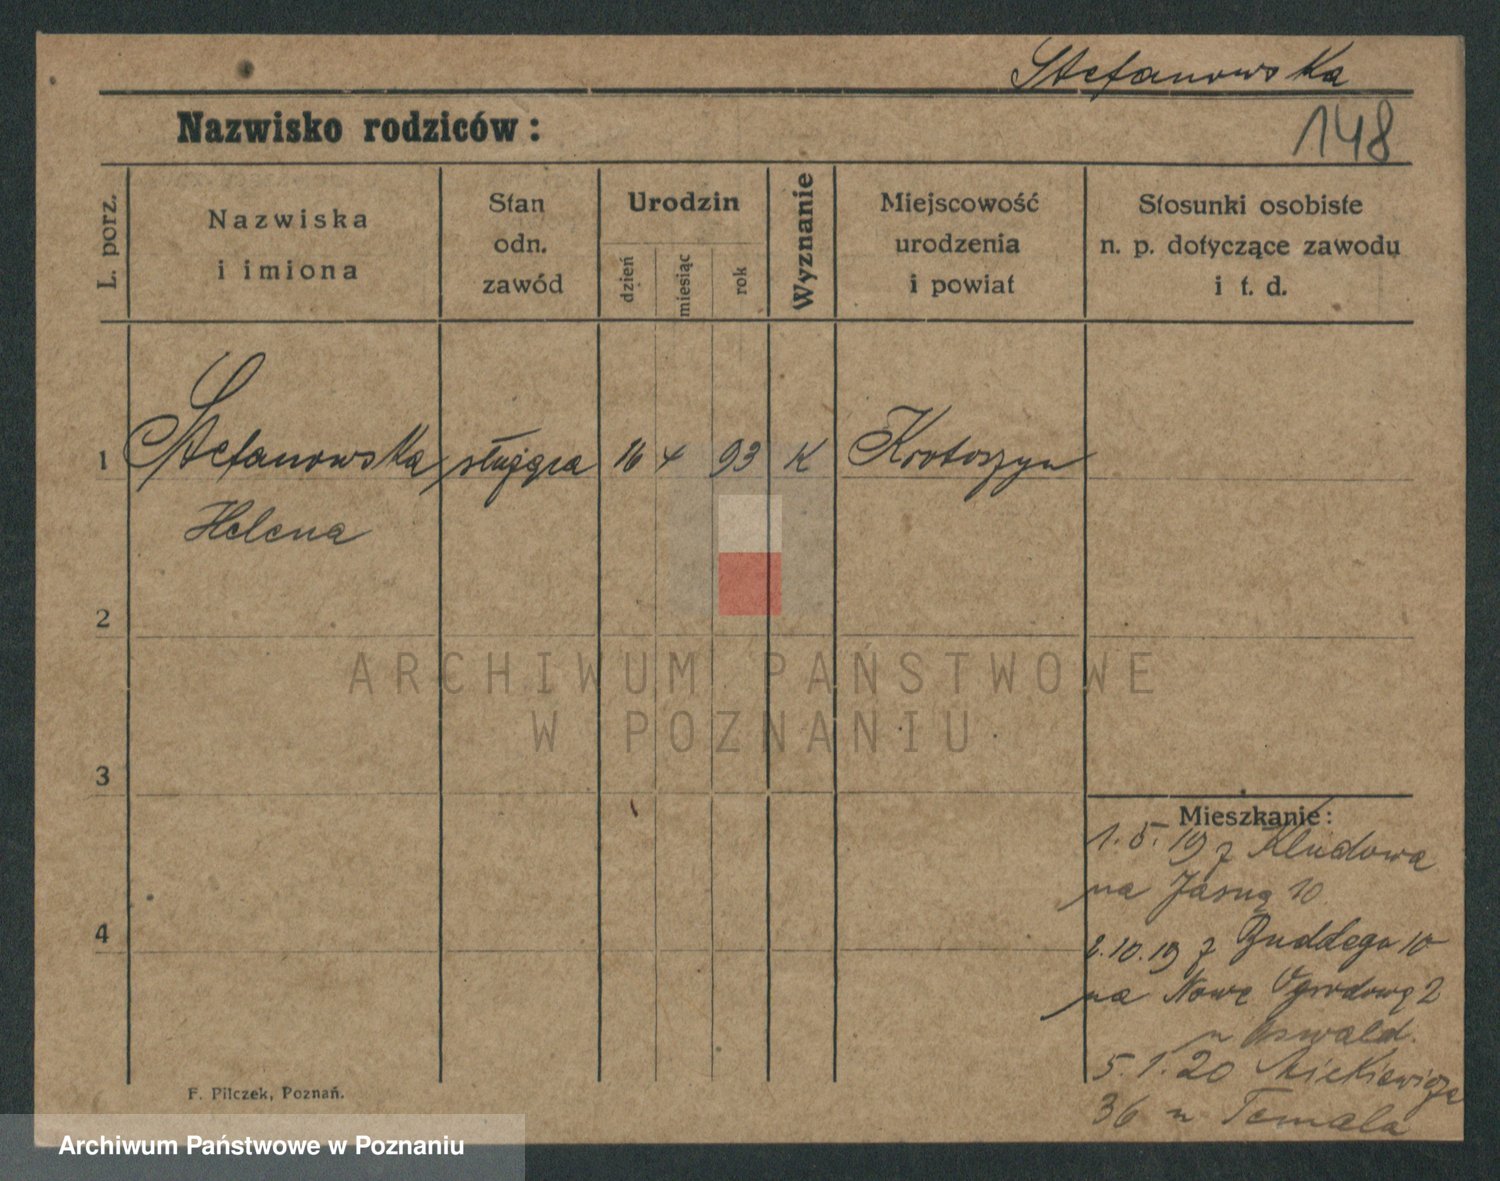 Stefanowska
Nazwisko rodziców:
148
L. porz.
Nazwiska
i imiona
Stan
odn.
zawód
Urodzin
dzień
miesiąc
rok
Wyznanie
Miejscowość
urodzenia
i powiat
Stosunki osobiste
n. p. dotyczące zawodu
i t. d.
1 Stefanowska służąca 16 4 93 K Krotoszyn
Helena
2
3
4
Mieszkanie:
1.5.19 z Kludowa
na Jasną 10
2.10.19 z Buddego 10
na Nowe Ogrodową 2
u Oswald.
5.1.20 Mickiewicza
36 u Temala
F. Pilczek, Poznań.
ARCHIWUM PAŃSTWOWE
W POZNANIU
Archiwum Państwowe w Poznaniu